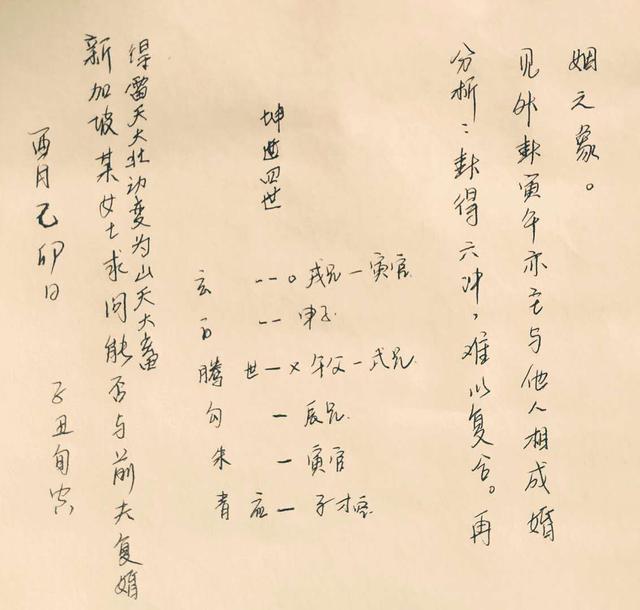 酉月己卯日 子丑旬空
新加坡某女士求问能否与前夫复婚
得雷天大壮动变为山天大畜
坤宫四世
玄 -- o 戌兄一寅官
白 -- 申
腾 世 一 x 午父一戌兄
勾 一 辰兄
朱 一 寅官
青 应 一 子才空
分析：卦得六冲，难以复合。再
见外卦寅午亦主与他人相成婚
姻之象。